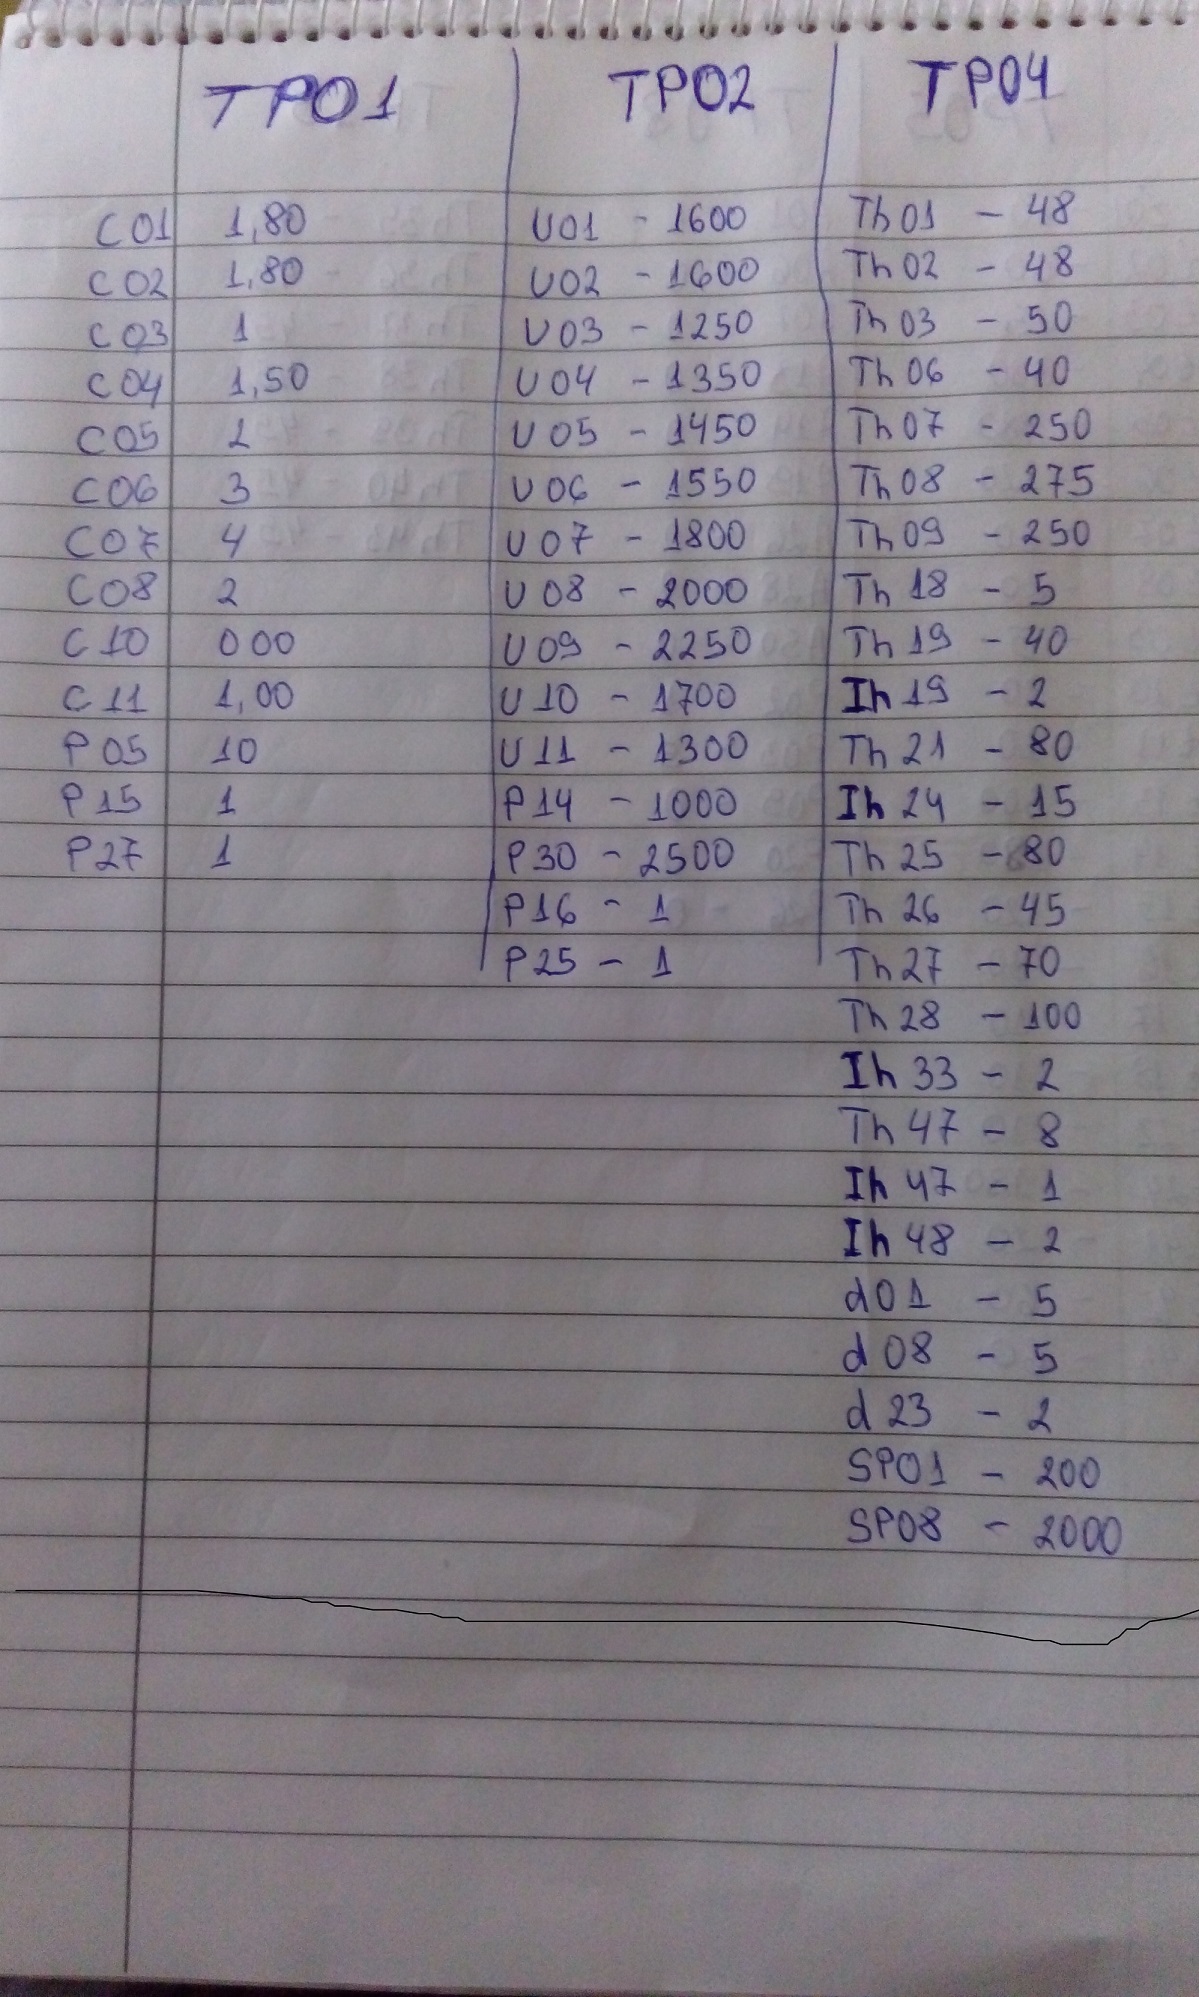 TP01
C01 1,80
C02 1,80
C03 1
C04 1,50
C05 2
C06 3
C07 4
C08 2
C10 000
C11 1,00
P05 10
P15 1
P27 1
TP02
U01 - 1600
U02 - 1600
U03 - 1250
U04 - 1350
U05 - 1450
U06 - 1550
U07 - 1800
U08 - 2000
U09 - 2250
U10 - 1700
U11 - 1300
P14 - 1000
P30 - 2500
P16 - 1
P25 - 1
TP04
Th01 - 48
Th02 - 48
Th03 - 50
Th06 - 40
Th07 - 250
Th08 - 275
Th09 - 250
Th18 - 5
Th19 - 40
Ih19 - 2
Th21 - 80
Ih24 - 15
Th25 - 80
Th26 - 45
Th27 - 70
Th28 - 100
Ih33 - 2
Th47 - 8
Ih47 - 1
Ih48 - 2
d01 - 5
d08 - 5
d23 - 2
SP01 - 200
SP08 - 2000